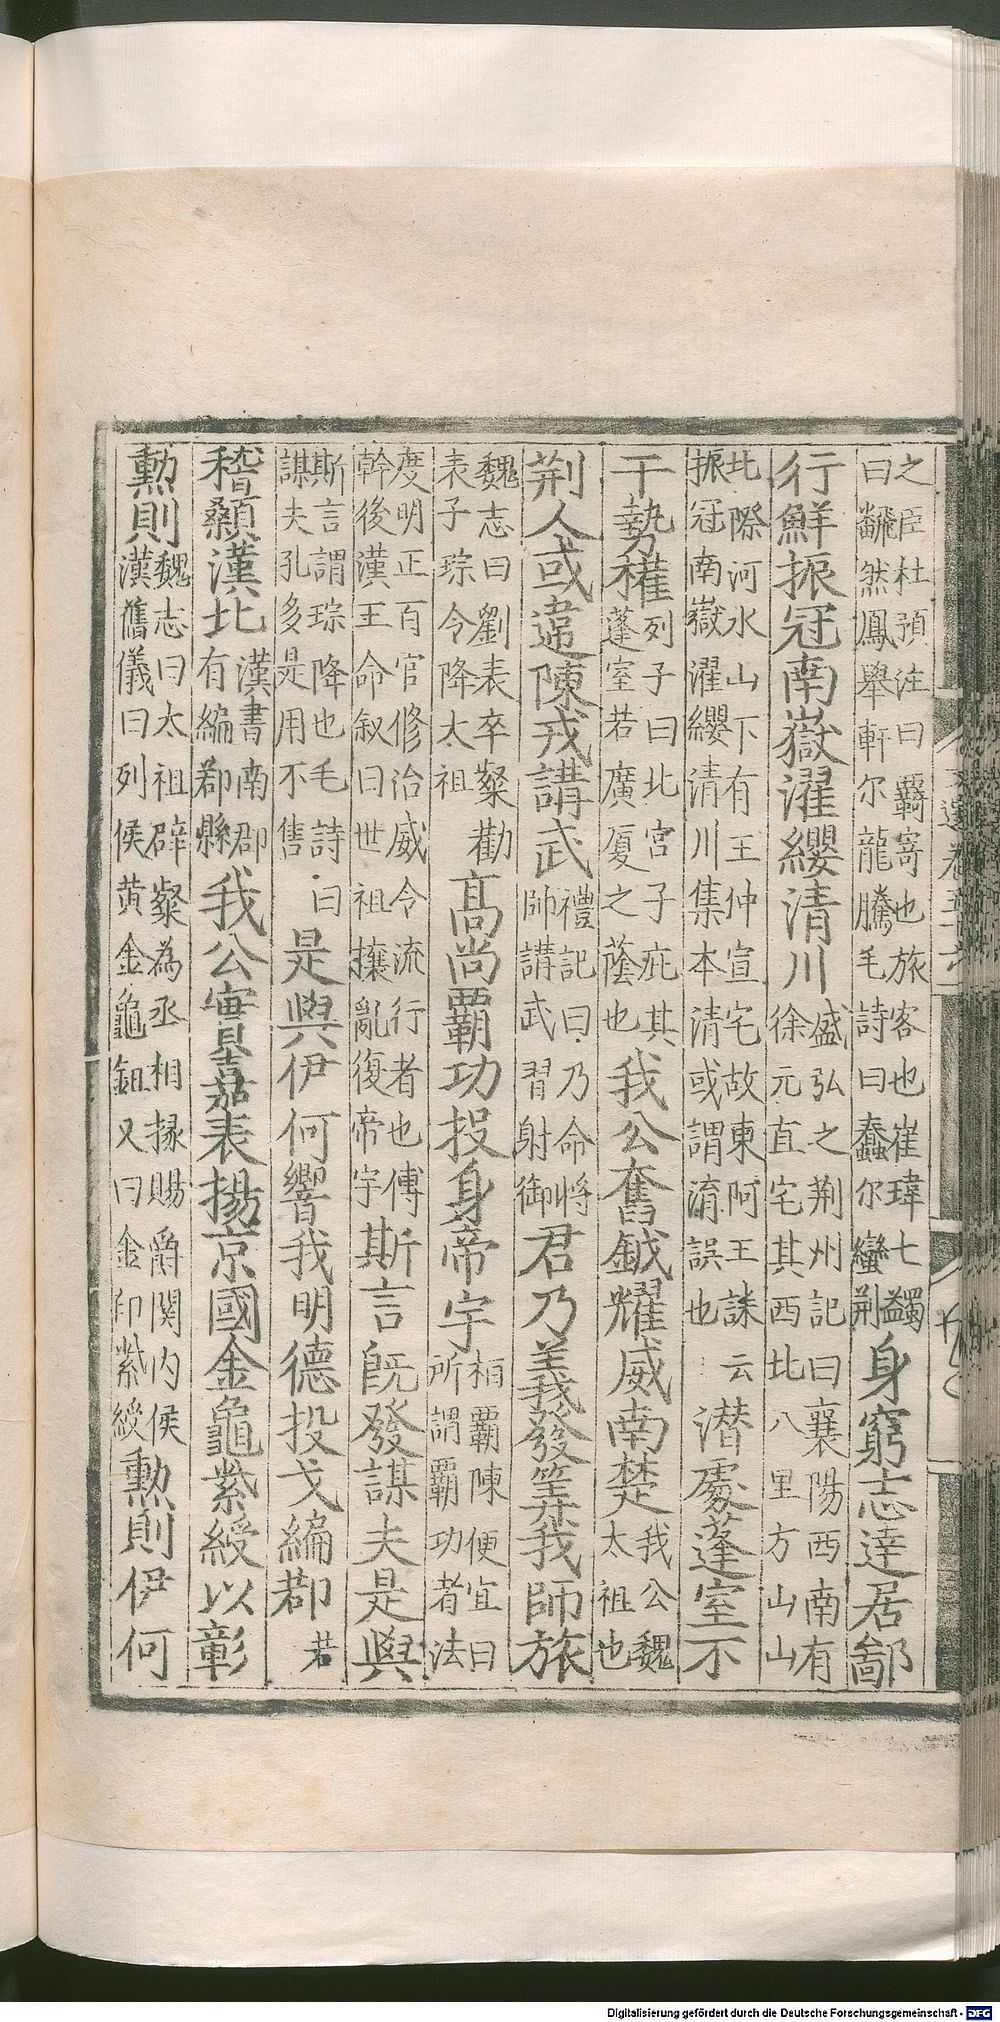 之臣杜預注曰羇寄也旅客也崔瑋七蠲
曰翻然鳳舉軒尔龍騰毛詩曰蠢尔蠻荊
身窮志達居鄙
行鮮振冠南嶽濯纓清川
盛弘之荊州記曰襄陽西南有
徐元直宅其西北八里方山山
北際河水山下有王仲宣宅故東阿王誄云
振冠南嶽濯纓清川集本清或謂淯誤也
潜處蓬室不
干勢權
列子曰北宮子庇其
蓬室若廣厦之蔭也
我公奮鉞耀威南楚
我公魏
太祖也
荊人或違陳戎講武
禮記曰乃命將
帥講武習射御
君乃義發筭我師旅
魏志曰劉表卒粲勸
表子琮令降太祖
高尚霸功投身帝宇
相霸陳便宜曰
所謂霸功者法
度明正百官修治威令流行者也傅
幹後漢王命叙曰世祖攘亂復帝宇
斯言旣發謀夫是與
斯言謂琮降也毛詩曰
謀夫孔多是用不售
是與伊何響我明德投戈編鄀
若
稽顙漢北
漢書南郡
有編鄀縣
我公實嘉表揚京國金龜紫綬以彰
勲則
魏志曰太祖辟粲為丞相掾賜爵関内侯
漢舊儀曰列侯黄金龜鈕又曰金印紫綬
勲則伊何
Digitalisierung gefördert durch die Deutsche Forschungsgemeinschaft - DFG